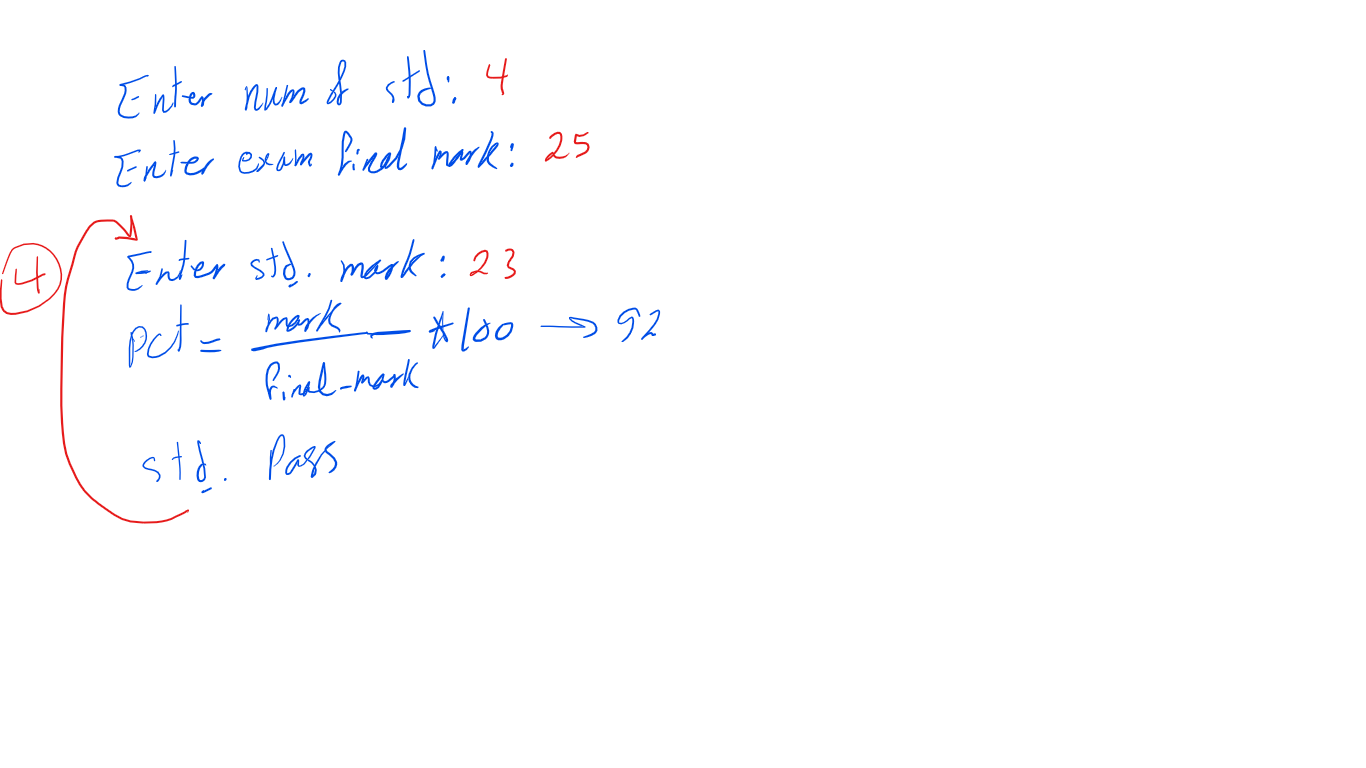 Enter num of std: 4
Enter exam final mark: 25
4
Enter std. mark: 23
Pct = mark / final_mark *100 → 92
std. Pass